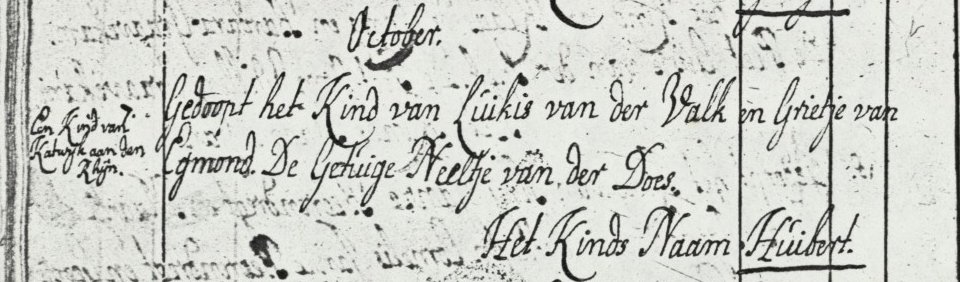 October.
Gedoopt het Kind van Luikis van der Valk en Grietje van
Egmond. De Getuige Neeltje van der Does.
Het Kinds Naam Huibert.
Een Kind van
Katwyk aan den
Rhijn.